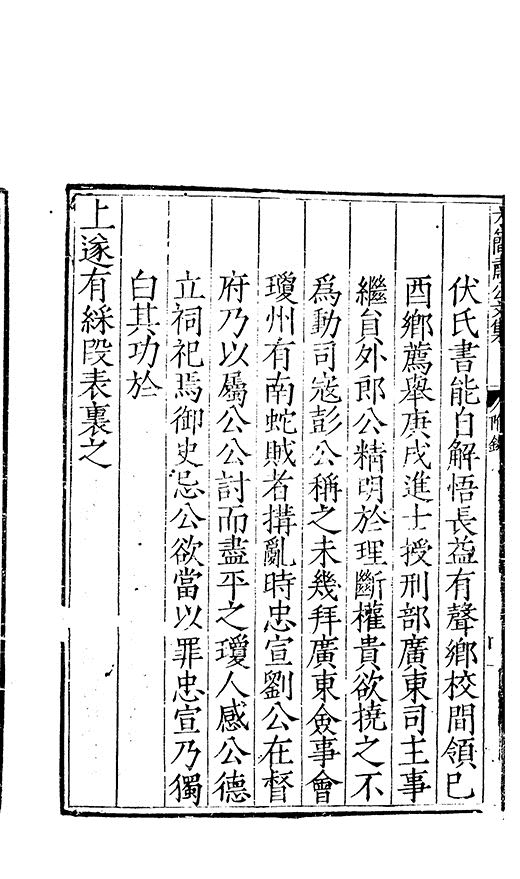 伏氏書能自解悟長益有聲鄉校間領己
酉鄉薦舉庚戌進士授刑部廣東司主事
繼員外郎公精明於理斷權貴欲撓之不
為動司寇彭公稱之未幾拜廣東僉事會
瓊州有南蛇賊者搆亂時忠宣劉公在督
府乃以屬公公討而盡平之瓊人感公德
立祠祀焉御史忌公欲當以罪忠宣乃獨
白其功於
上遂有綵段表裏之